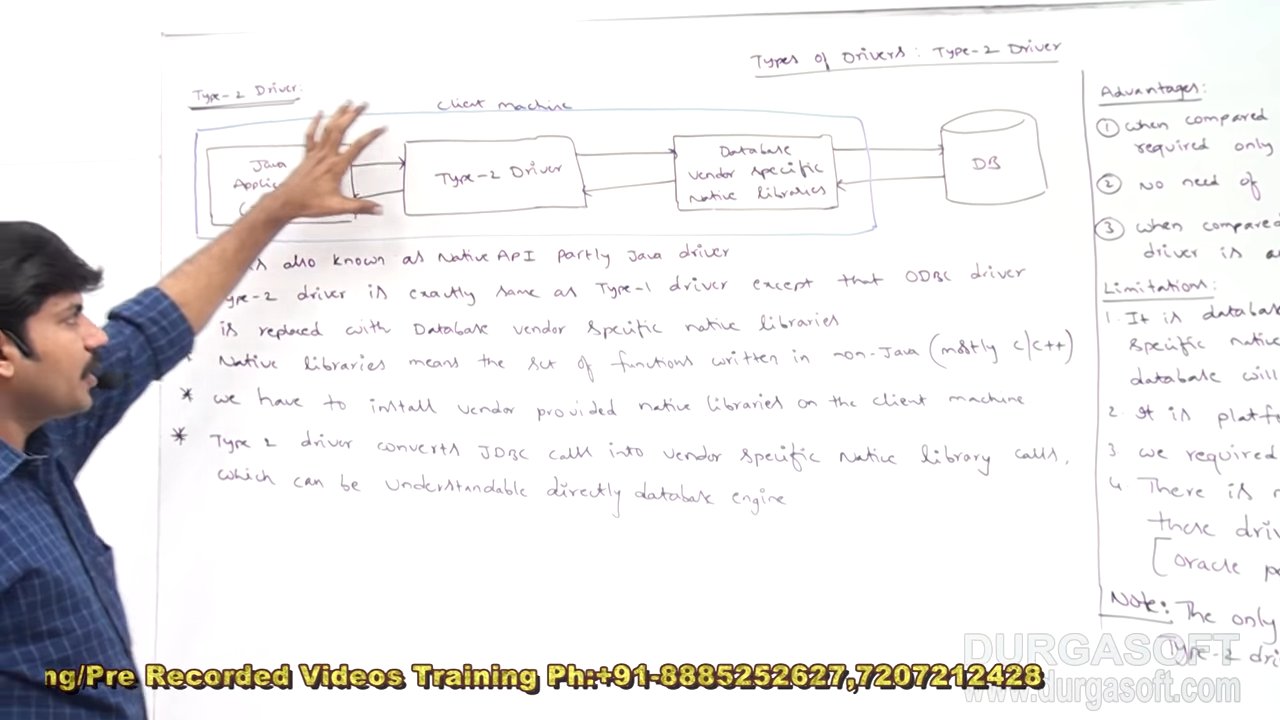 Types of Drivers: Type-2 Driver
Type-2 Driver:
client machine
Java
Type-2 Driver
Database
vendor specific
Native libraries
DB
also known as Native API Partly Java driver
Type-2 driver is exactly same as Type-1 driver except that ODBC driver
is replaced with Database vendor specific native libraries
* Native libraries means the set of functions written in non-Java (mostly C/C++)
* we have to install vendor provided native libraries on the client machine
* Type 2 driver converts JDBC calls into vendor specific Native library calls,
which can be understandable directly database engine
Advantages:
① when compared
required only
② No need of
③ when compared
driver is
Limitations:
1. It is database
specific native
database will
2. It is
3 we required
4 There is
these
[oracle
Note: The only
Type-2
DURGASOFT
www.durgasoft.com
ng/Pre Recorded Videos Training Ph:+91-8885252627,7207212428